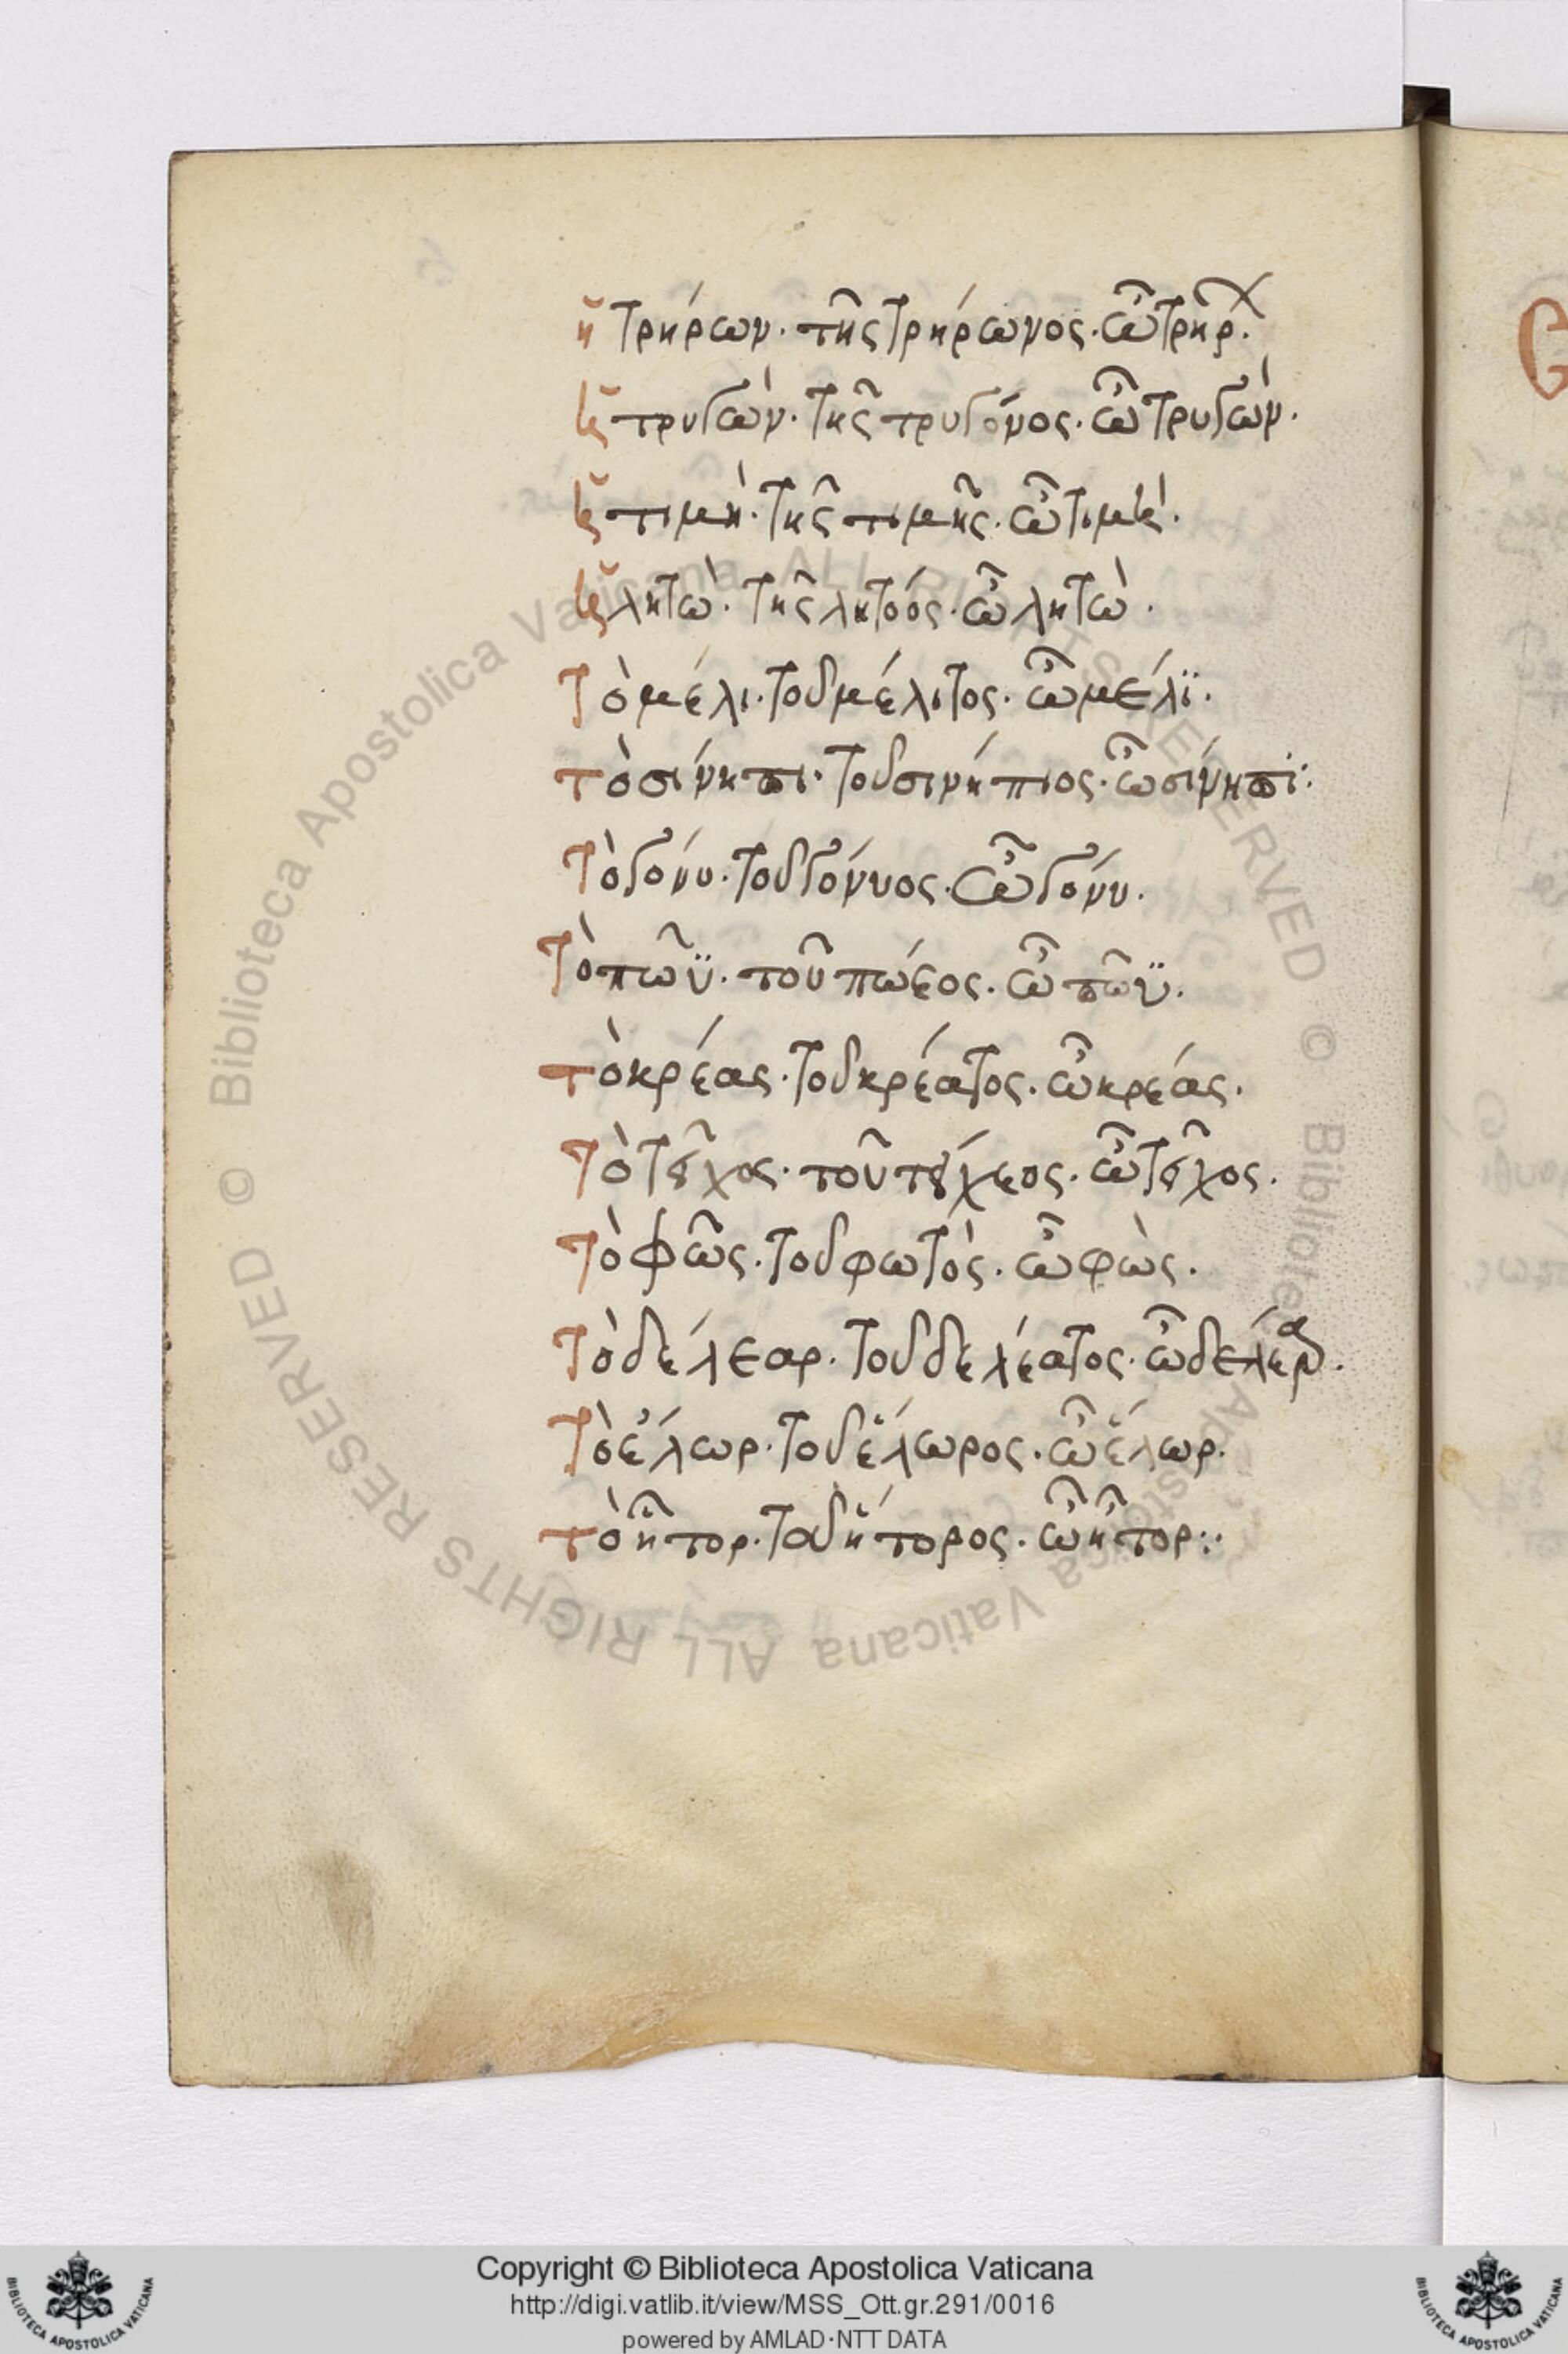 ἡ τρήρων. τῆς τρήρωνος. ὦ τρῆρ.
ἡ τρυγών. τῆς τρυγόνος. ὦ τρυγών.
ἡ τιμή. τῆς τιμῆς. ὦ τιμή.
ἡ λητὼ. τῆς λητόος. ὦ λητὼ.
τὸ μέλι. τοῦ μέλιτος. ὦ μέλϊ.
τὸ σίνηπι. τοῦ σινήπιος. ὦ σίνηπϊ:
τὸ γόνυ. τοῦ γόνυος. ὦ γόνυ.
τὸ πῶϋ. τοῦ πώεος. ὦ πῶϋ.
τὸ κρέας. τοῦ κρέατος. ὦ κρέας.
τὸ τεῖχος. τοῦ τείχεος. ὦ τεῖχος.
τὸ φῶς. τοῦ φωτὸς. ὦ φὼς.
τὸ δέλεαρ. τοῦ δελέατος. ὦ δελέαρ.
τὸ ἕλωρ. τοῦ ἕλωρος. ὦ ἕλωρ.
τὸ ἦτορ. τοῦ ἤτορος. ὦ ἦτορ:
Copyright © Biblioteca Apostolica Vaticana
http://digi.vatlib.it/view/MSS_Ott.gr.291/0016
powered by AMLAD·NTT DATA